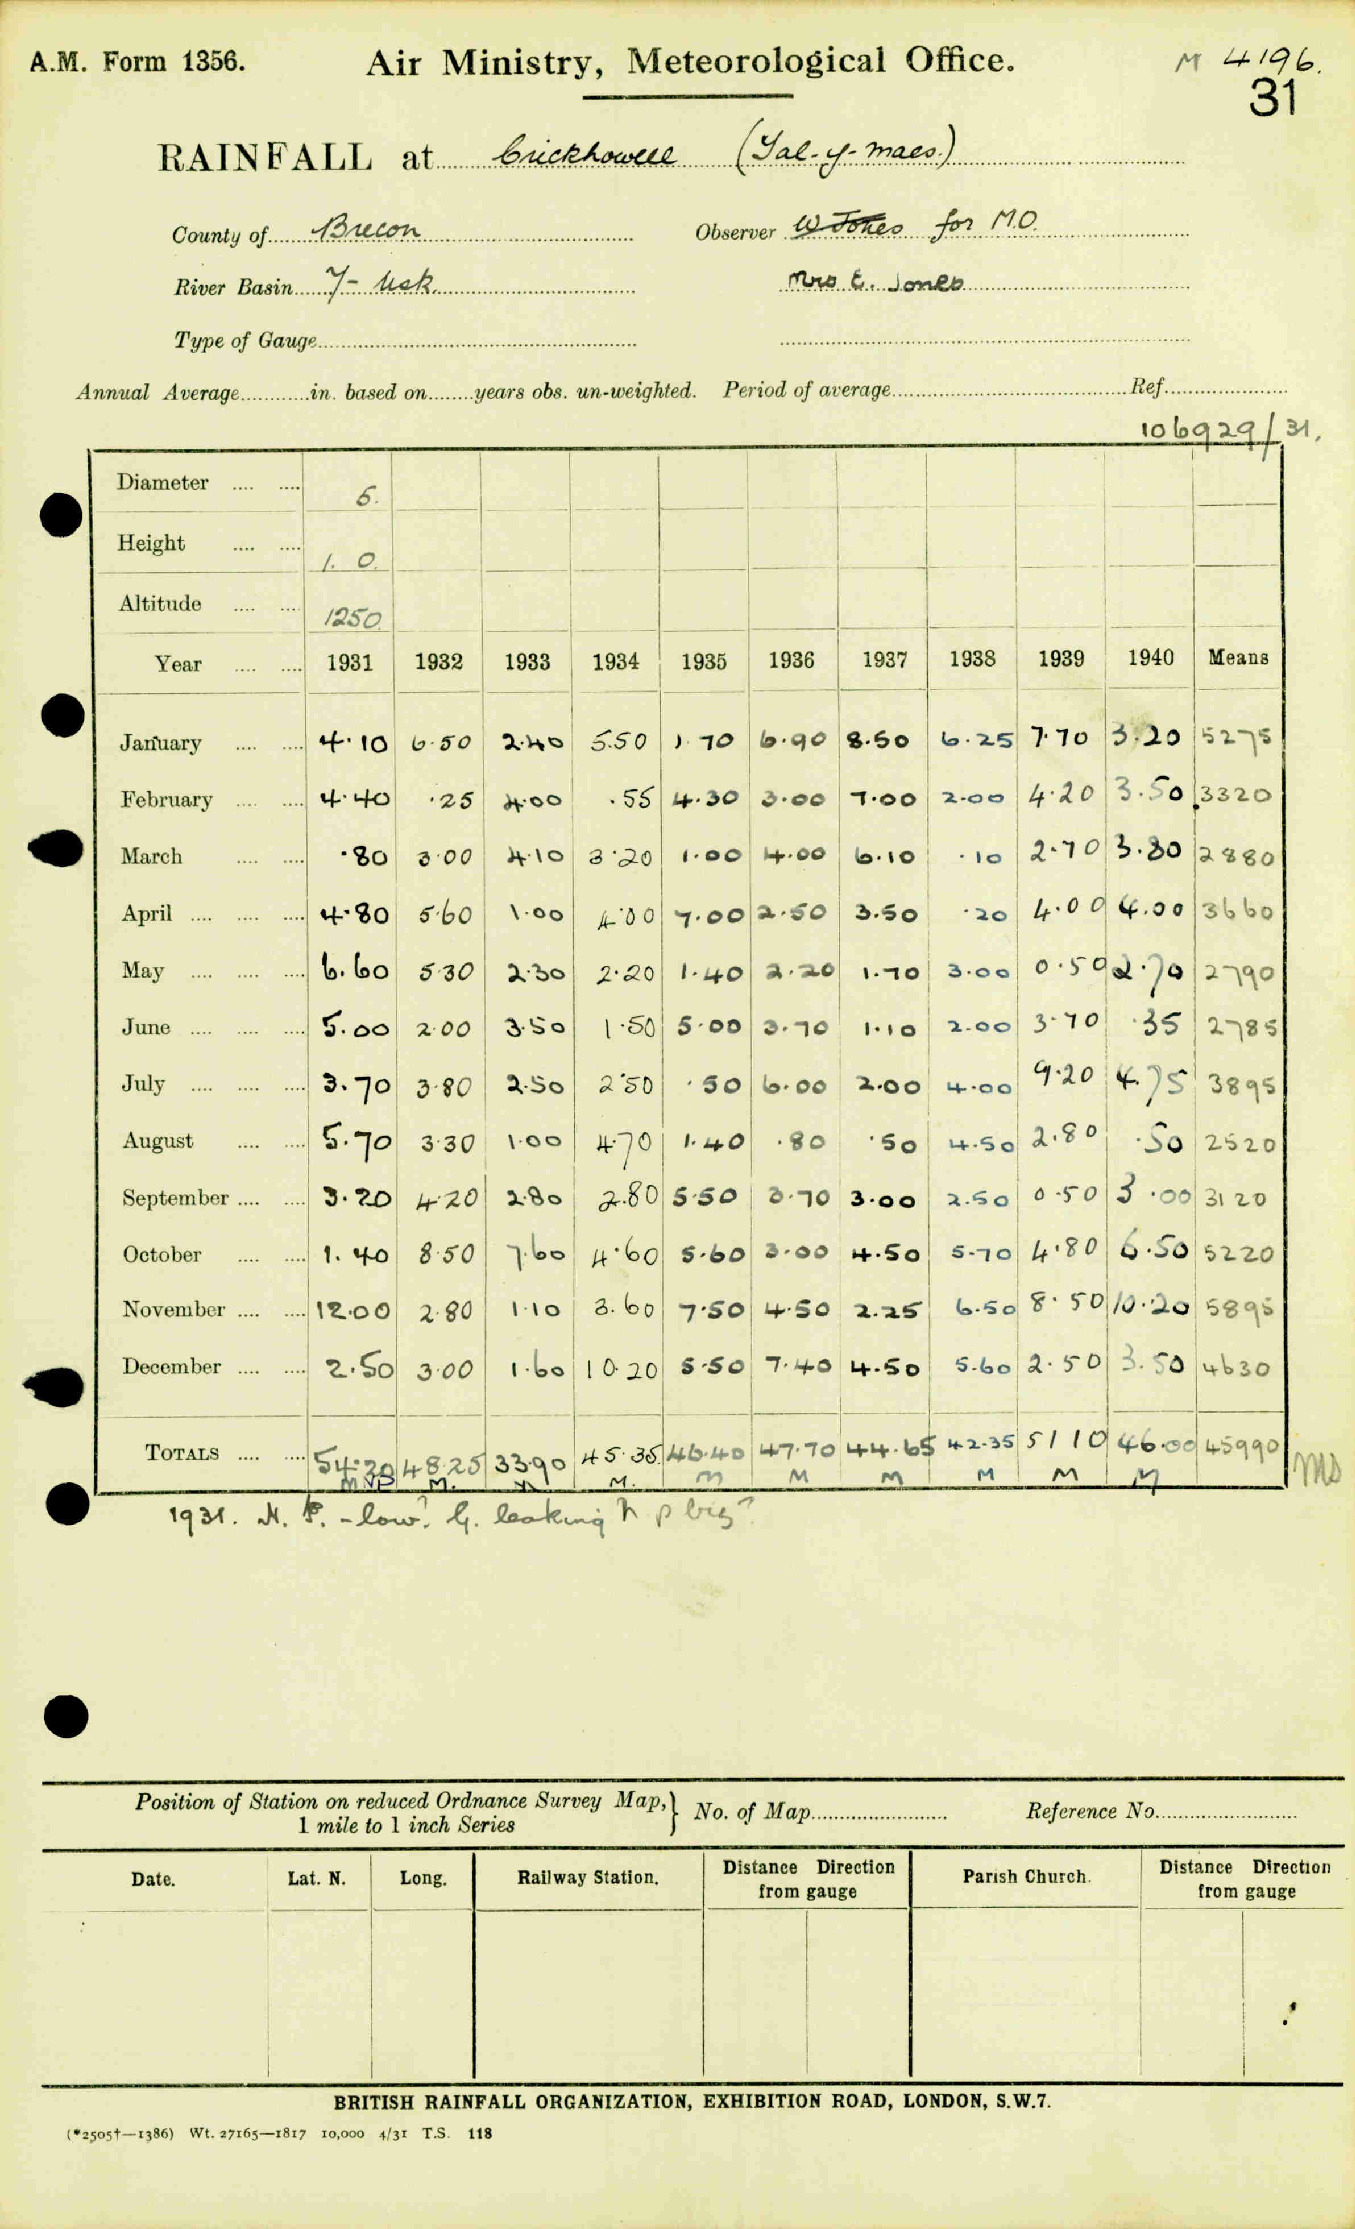 A.M. Form 1356. Air Ministry, Meteorological Office. M 4196.
31
RAINFALL at Crickhowell (Tal-y-maes.)
County of Brecon Observer W Jones for M.O.
River Basin 7- Usk. Mrs E. Jones
Type of Gauge
Annual Average in. based on years obs. un-weighted. Period of average Ref.
106929/31.
Diameter 5.
Height 1. 0.
Altitude 1250.
Year 1931 1932 1933 1934 1935 1936 1937 1938 1939 1940 Means
January 4.10 6.50 2.40 5.50 1.70 6.90 8.50 6.25 7.70 3.20 5275
February 4.40 .25 4.00 .55 4.30 3.00 7.00 2.00 4.20 3.50 3320
March .80 3.00 4.10 3.20 1.00 4.00 6.10 .10 2.70 3.80 2880
April 4.80 5.60 1.00 4.00 7.00 2.50 3.50 .20 4.00 4.00 3660
May 6.60 5.30 2.30 2.20 1.40 2.20 1.70 3.00 0.50 2.70 2790
June 5.00 2.00 3.50 1.50 5.00 3.70 1.10 2.00 3.70 .35 2785
July 3.70 3.80 2.50 2.50 .50 6.00 2.00 4.00 9.20 4.75 3895
August 5.70 3.30 1.00 4.70 1.40 .80 .50 4.50 2.80 .50 2520
September 3.20 4.20 2.80 2.80 5.50 3.70 3.00 2.50 0.50 3.00 3120
October 1.40 8.50 7.60 4.60 5.60 3.00 4.50 5.70 4.80 6.50 5220
November 12.00 2.80 1.10 3.60 7.50 4.50 2.25 6.50 8.50 10.20 5895
December 2.50 3.00 1.60 10.20 5.50 7.40 4.50 5.60 2.50 3.50 4630
TOTALS 54.20 48.25 33.90 45.35 46.40 47.70 44.65 42.35 51 10 46.00 45990 MS
M NP M. M M. M M M M M M
1931. N. P. - low? G. leaking p big?
Position of Station on reduced Ordnance Survey Map, 1 mile to 1 inch Series No. of Map Reference No.
Date. Lat. N. Long. Railway Station. Distance Direction from gauge Parish Church. Distance Direction from gauge
BRITISH RAINFALL ORGANIZATION, EXHIBITION ROAD, LONDON, S.W.7.
(*2505†—1386) Wt. 27165—1817 10,000 4/31 T.S. 118